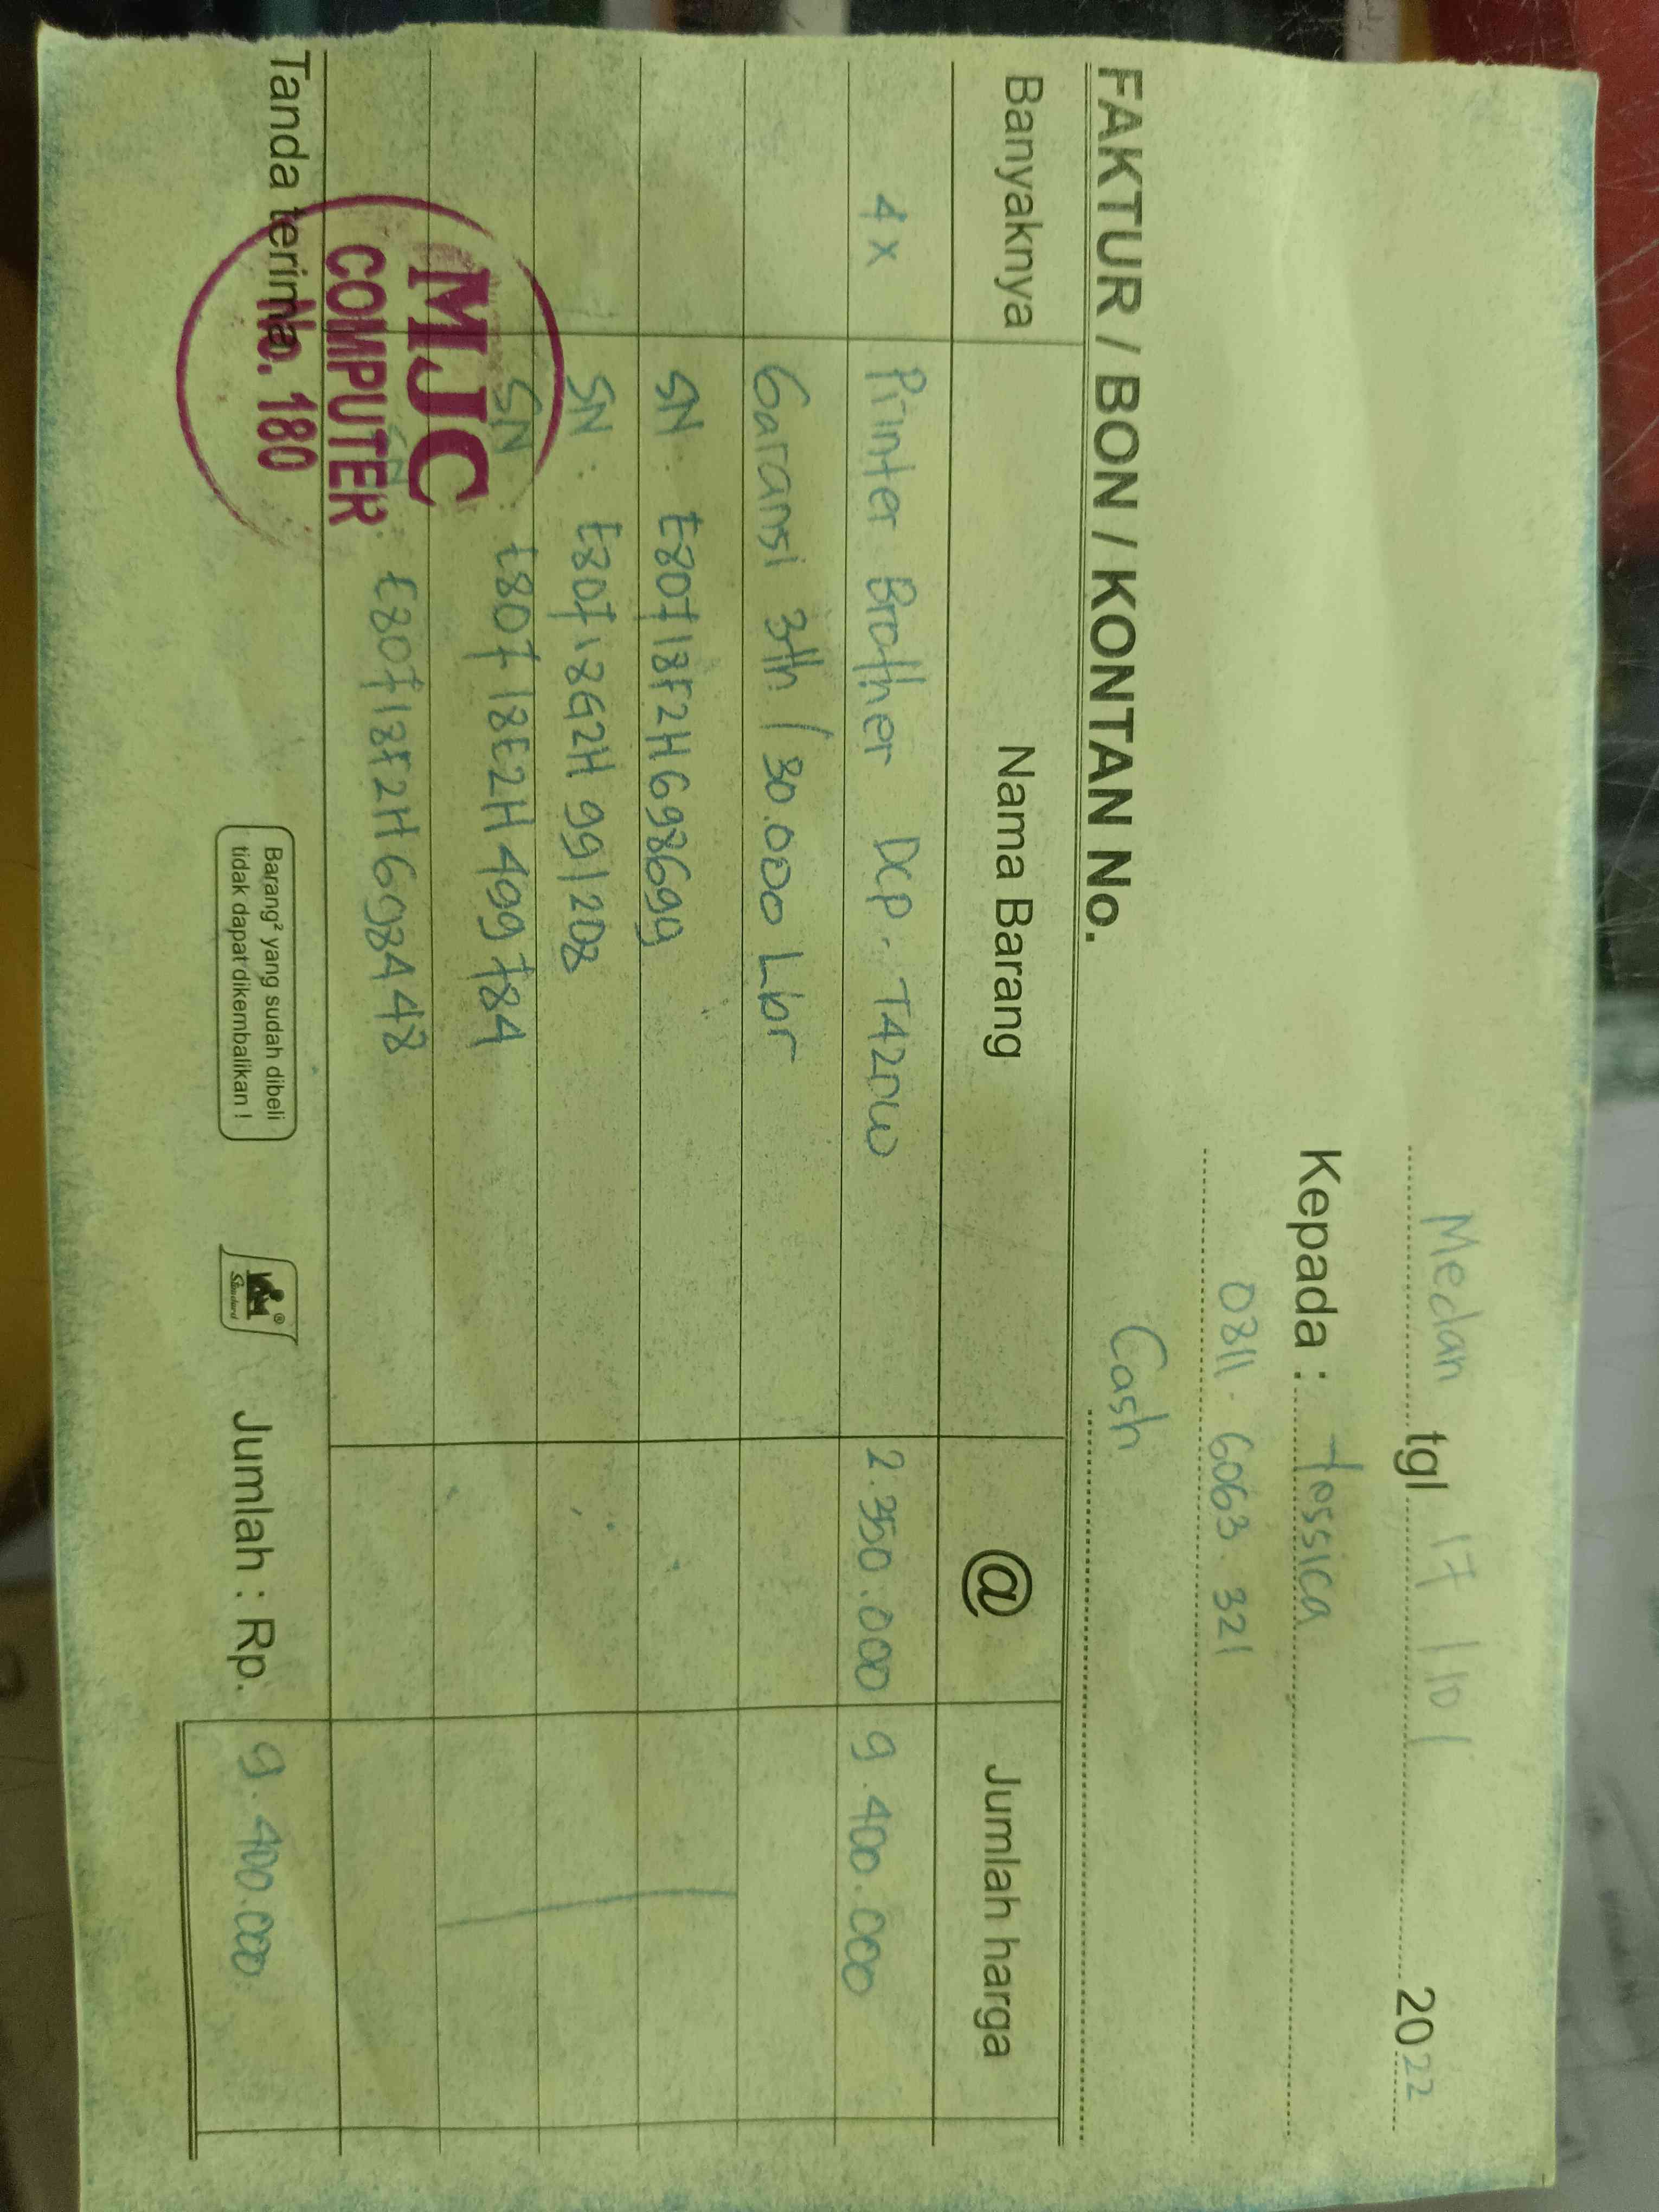 Medan tgl 17 / 10 / 2022
Kepada : Jessica
0811. 6063. 321
Cash
FAKTUR / BON / KONTAN No.
Banyaknya Nama Barang @ Jumlah harga
4 x Printer Brother Dcp. T420W 2.350.000 9.400.000
Garansi 3th / 30.000 Lbr
SN : E80718F2H698699
SN : E80718G2H991208
SN : E80718E2H499784
SN : E80718F2H698448
Tanda terima
MJC
COMPUTER
No. 180
Barang² yang sudah dibeli
tidak dapat dikembalikan !
Standard
Jumlah : Rp. 9.400.000